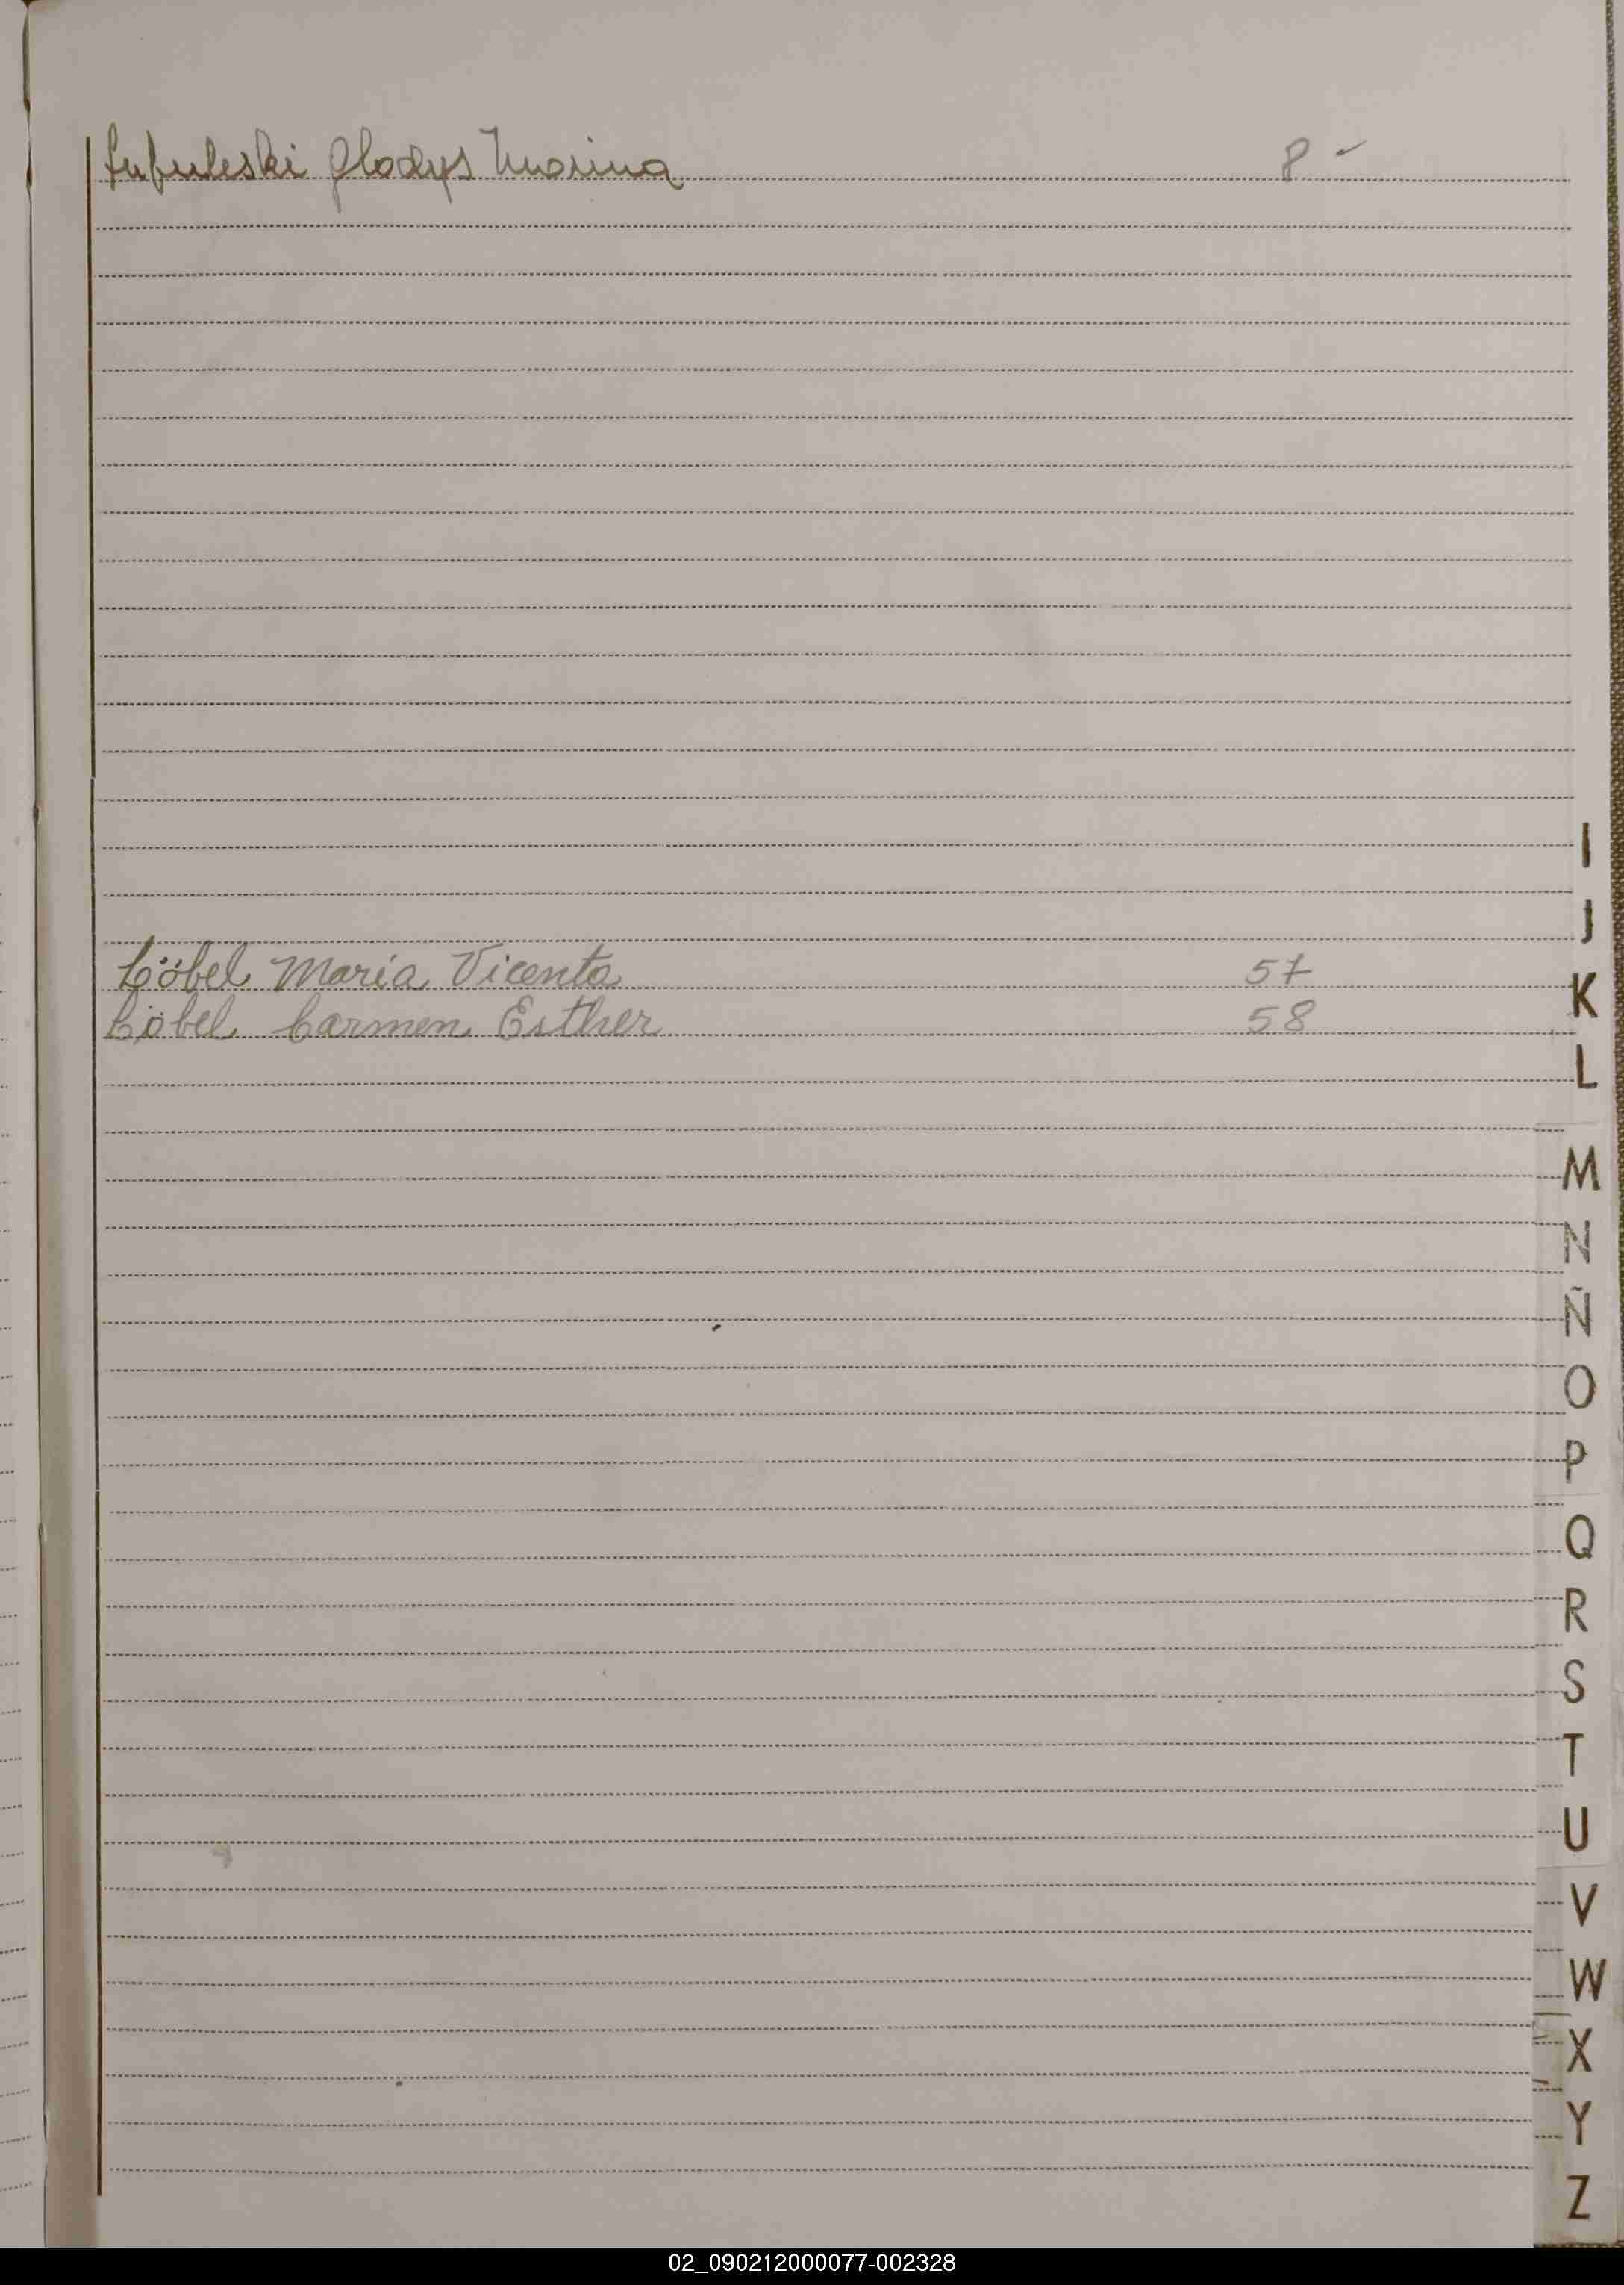 Gladys Marina 8 -
Löbel María Vicenta 57
Löbel Carmen Esther 58
I
J
K
L
M
N
Ñ
O
P
Q
R
S
T
U
V
W
X
Y
Z
02_090212000077-002328